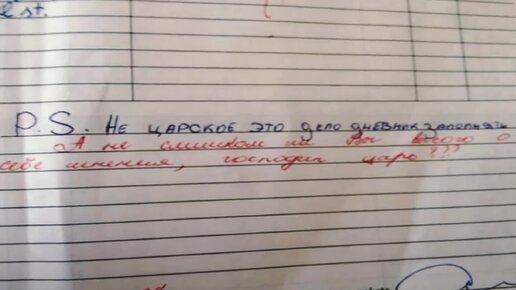 est.
P.S. Не царское это дело дневник заполнять
А не слишком ли Вы много о
себе мнения, господин царь???